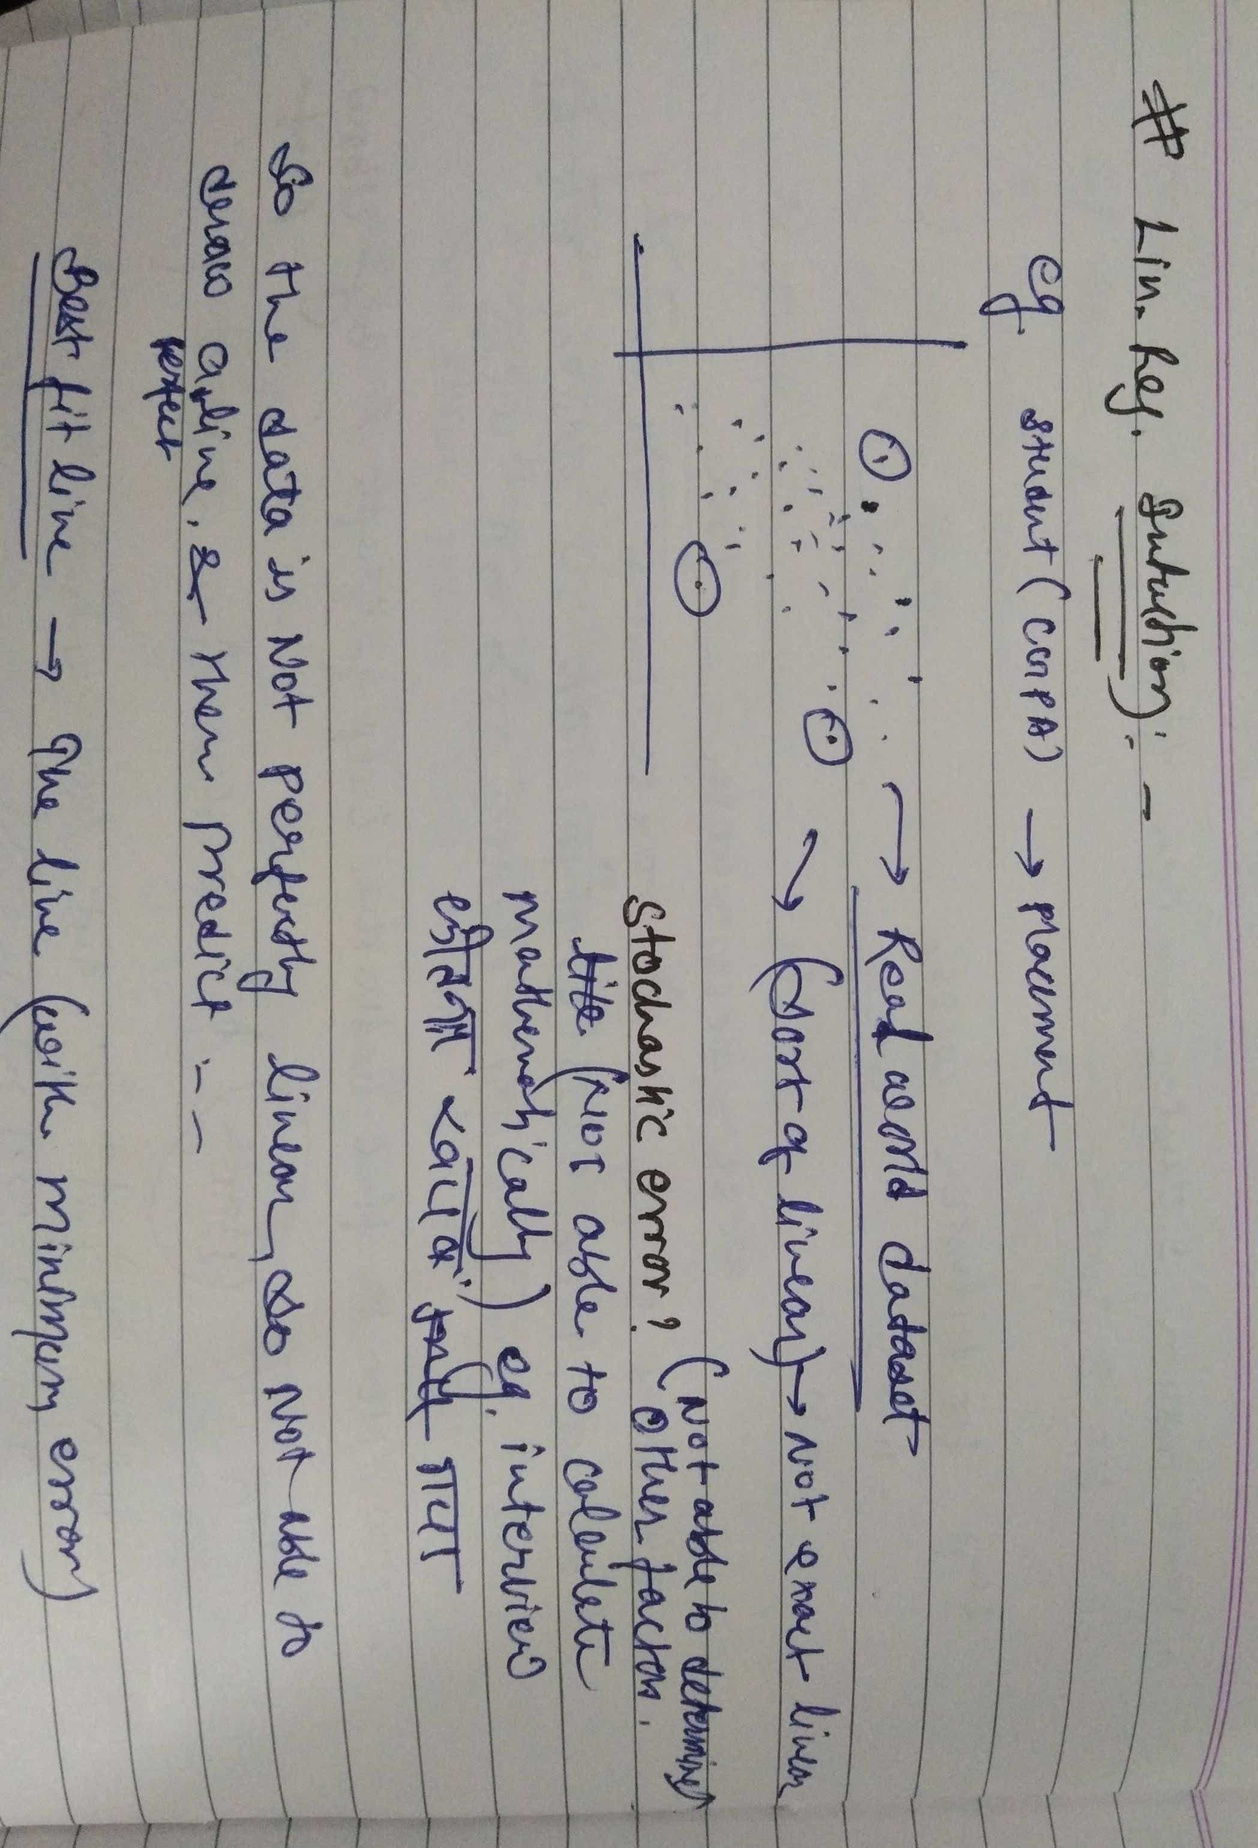 # Lin. Reg. Intuition):-
eg. student (CGPA) → placement
→ Real world dataset
→ (Sort of linear) → Not exact linear
Stochastic error? (Not able to determine
other factors.
(Not able to calculate
mathematically) eg. interview
गया
So the data is Not perfectly linear, so Not able to
draw a perfect line, & then predict --
Best fit line → The line (with minimum error)